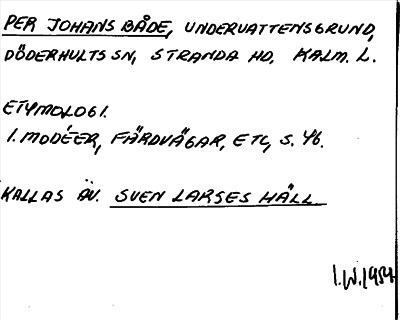 PER JOHANS BÅDE, UNDERVATTENSGRUND,
DÖDERHULTS SN, STRANDA HD, KALM. L.
ETYMOLOGI.
I. MODÉER, FÄRDVÄGAR, ETC, S. 46.
KALLAS ÄV. SVEN LARSES HÄLL.
I.W. 1954